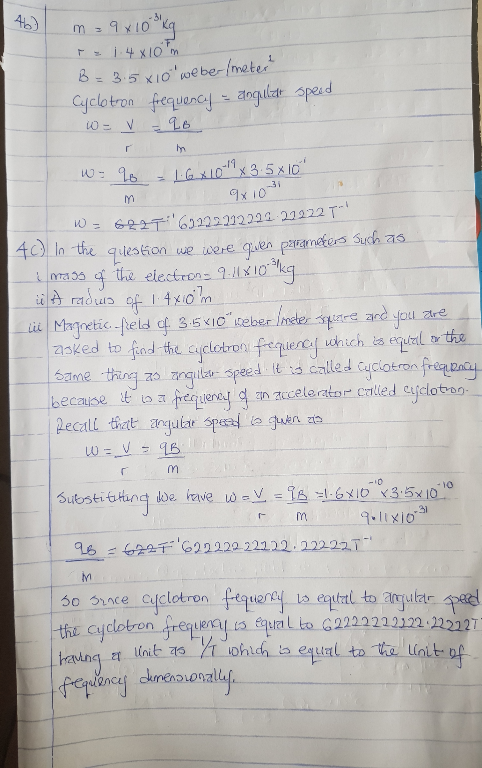 4b) m = 9 x 10⁻³¹kg
r = 1.4 x10⁻⁷m
B = 3.5 x10⁻¹ weber/meter²
Cyclotron frequency = angular speed
ω = V/r = qB/m
ω = qB/m = 1.6 x 10⁻¹⁹ x 3.5 x 10⁻¹ / 9 x 10⁻³¹
ω = 622T⁻¹ 62222222222.22222 T⁻¹
4c) In the question we were given parameters such as
i mass of the electron = 9.11 x 10⁻³¹kg
ii A radius of 1.4 x10⁻⁷m
iii Magnetic field of 3.5 x10⁻¹ weber/meter square and you are
asked to find the cyclotron frequency which is equal or the
same thing as angular speed it is called cyclotron frequency
because it is a frequency of an accelerator called cyclotron.
Recall that angular speed is given as
ω = V/r = qB/m
Substituting we have ω = V/r = qB/m = 1.6 x 10⁻¹⁰ x 3.5 x 10⁻¹⁰ / 9.11 x 10⁻³¹
qB/m = 622T⁻¹ 62222222222.22222T⁻¹
So since cyclotron frequency is equal to angular speed
the cyclotron frequency is equal to 62222222222.22222T
having a unit as 1/T which is equal to the unit of
frequency dimensionally.